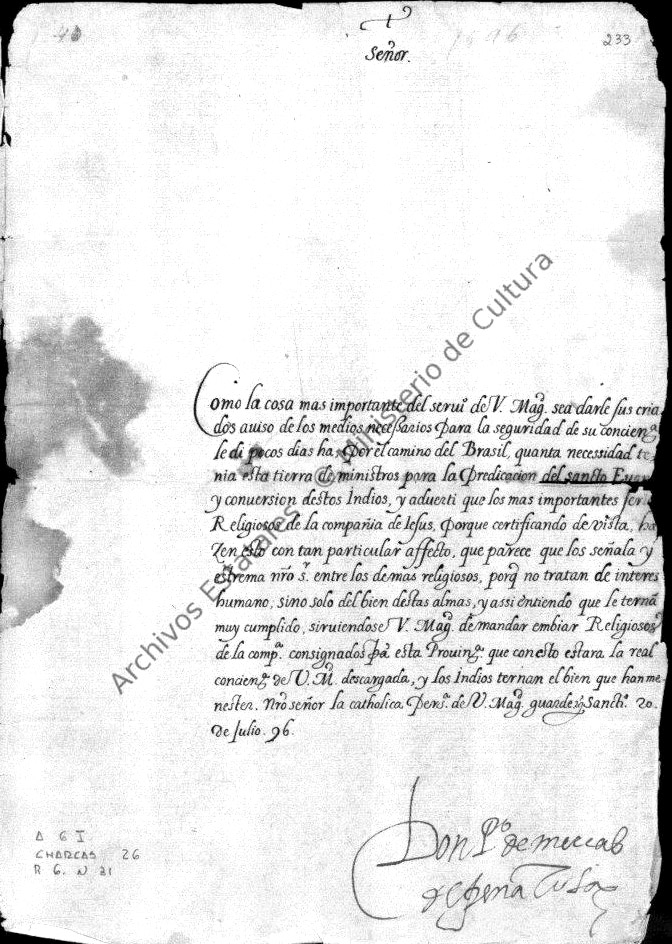 40
1596
233
Señor.
Como la cosa mas importante del serui° de V. Magᵈ. sea darle sus cria
dos auiso de los medios neceßarios para la seguridad de su conciençᵃ
le di pocos dias ha, por el camino del Brasil, quanta necessidad te
nia esta tierra de ministros para la Predicacion del sancto Euan
y conuersion destos Indios, y aduerti que los mas importantes
Religiosos de la compañia de Iesus, porque certificando de vista, ha
zen esto con tan particular affecto, que parece que los señala y
estrema nr̃o s.ʳ entre los demas religiosos, porq̃ no tratan de interes
humano, sino solo del bien destas almas, y assi entiendo que le ternã
muy cumplido, siruiendose V. Magᵈ. de mandar embiar Religiosos
de la compᵃ. consignados pᵃ esta Prouinçᵃ. que con esto estara la real
conciençᵃ de V. Mᵈ. descargada, y los Indios ternan el bien que han me
nester. Nr̃o señor la catholica persᵃ. de V. Magᵈ. guarde Sanctiº. 20.
de Julio. 96.
Don Pº de mercado
de peñalosa
A G I
CHARCAS 26
R 6. N 31
Archivos Estatales © Ministerio de Cultura